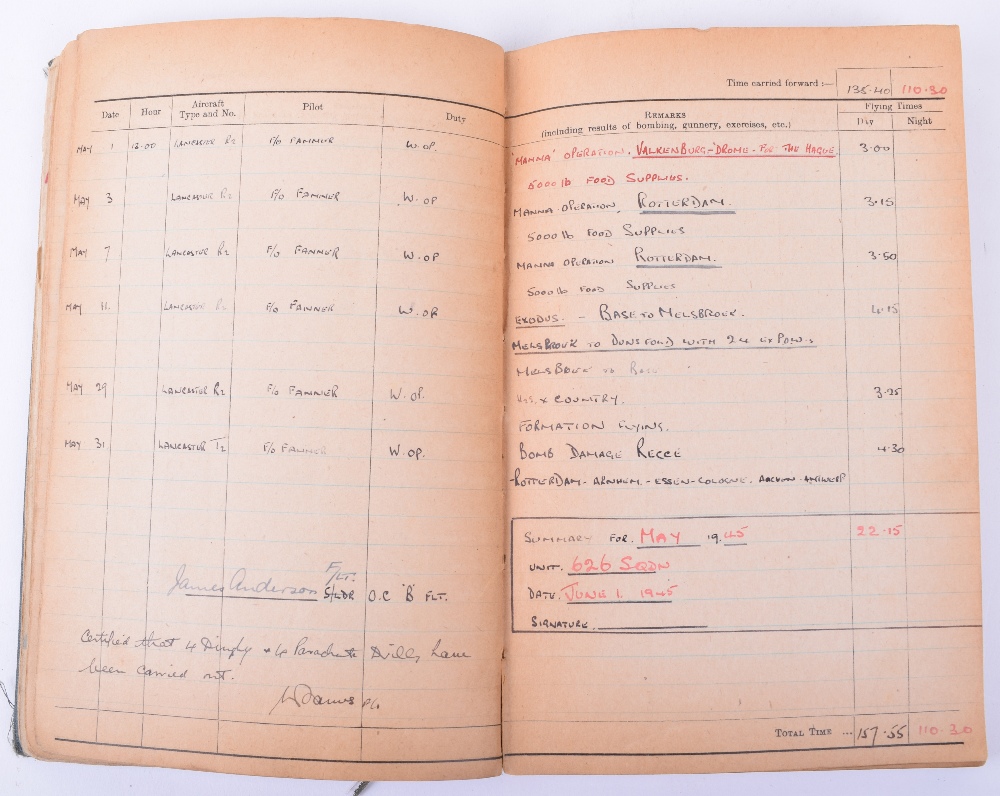 Date Hour Aircraft Type and No. Pilot Duty
MAY 1 13.00 LANCASTER R2 F/O FANNER W.OP.
MAY 3 LANCASTER R2 F/O FANNER W.OP
MAY 7 LANCASTER R2 F/O FANNER W.OP
MAY 11. LANCASTER R2 F/O FANNER W.OP
MAY 29 LANCASTER R2 F/O FANNER W.OP.
MAY 31. LANCASTER T2 F/O FANNER W.OP.
F/LT.
James Anderson S/LDR O.C 'B' FLT.
Certified that 4 Dinghy + 4 Parachute Drills have
been carried out.
Time carried forward :— 135.40 110.30
REMARKS
(including results of bombing, gunnery, exercises, etc.)
Flying Times
Day Night
'MANNA' OPERATION. VALKENBURG-'DROME-FOR THE HAGUE. 3.00
5000 lb FOOD SUPPLIES.
MANNA OPERATION. ROTTERDAM. 3.15
5000 lb FOOD SUPPLIES
MANNA OPERATION ROTTERDAM. 3.50
5000 lb FOOD SUPPLIES
EXODUS. - BASE TO MELSBROEK. 4.15
MELSBROEK TO DUNSFOLD WITH 24 EX P.O.W.s
MELSBROEK TO BASE
X COUNTRY. 3.25
FORMATION FLYING.
BOMB DAMAGE RECCE 4.30
-ROTTERDAM- ARNHEM.-ESSEN-COLOGNE. AACHEN-ANTWERP
SUMMARY FOR. MAY 19.45 22.15
UNIT. 626 SQDN
DATE. JUNE 1. 1945
SIGNATURE.
TOTAL TIME ... 157.55 110.30